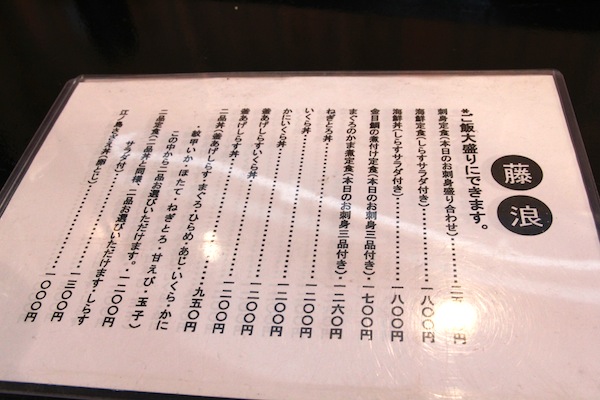 藤浪
*ご飯大盛りにできます。
刺身定食(本日のお刺身盛り合わせ)
海鮮定食(しらすサラダ付き)・・・・一八〇〇円
海鮮丼(しらすサラダ付き)・・・・一八〇〇円
金目鯛の煮付け定食(本日のお刺身三品付き)・一七〇〇円
まぐろのかま煮定食(本日のお刺身三品付き)・一二六〇円
ねぎとろ丼・・・・一二〇〇円
いくら丼・・・・一二〇〇円
かにいくら丼・・・・一二〇〇円
釜あげしらすいくら丼・・・・一二〇〇円
釜あげしらす丼・・・・一二〇〇円
二品丼(釜あげしらす・まぐろ・ひらめ・あじ・いくら・かに
・紋甲いか・ほたて・ねぎとろ・甘えび・玉子)
この中から二品お選びいただけます・・・九五〇円
二品定食(二品丼と同様、二品お選びいただけます。しらす
サラダ付)・・・・一三〇〇円
江ノ島さざえ丼(卵とじ)・・・・一〇〇〇円